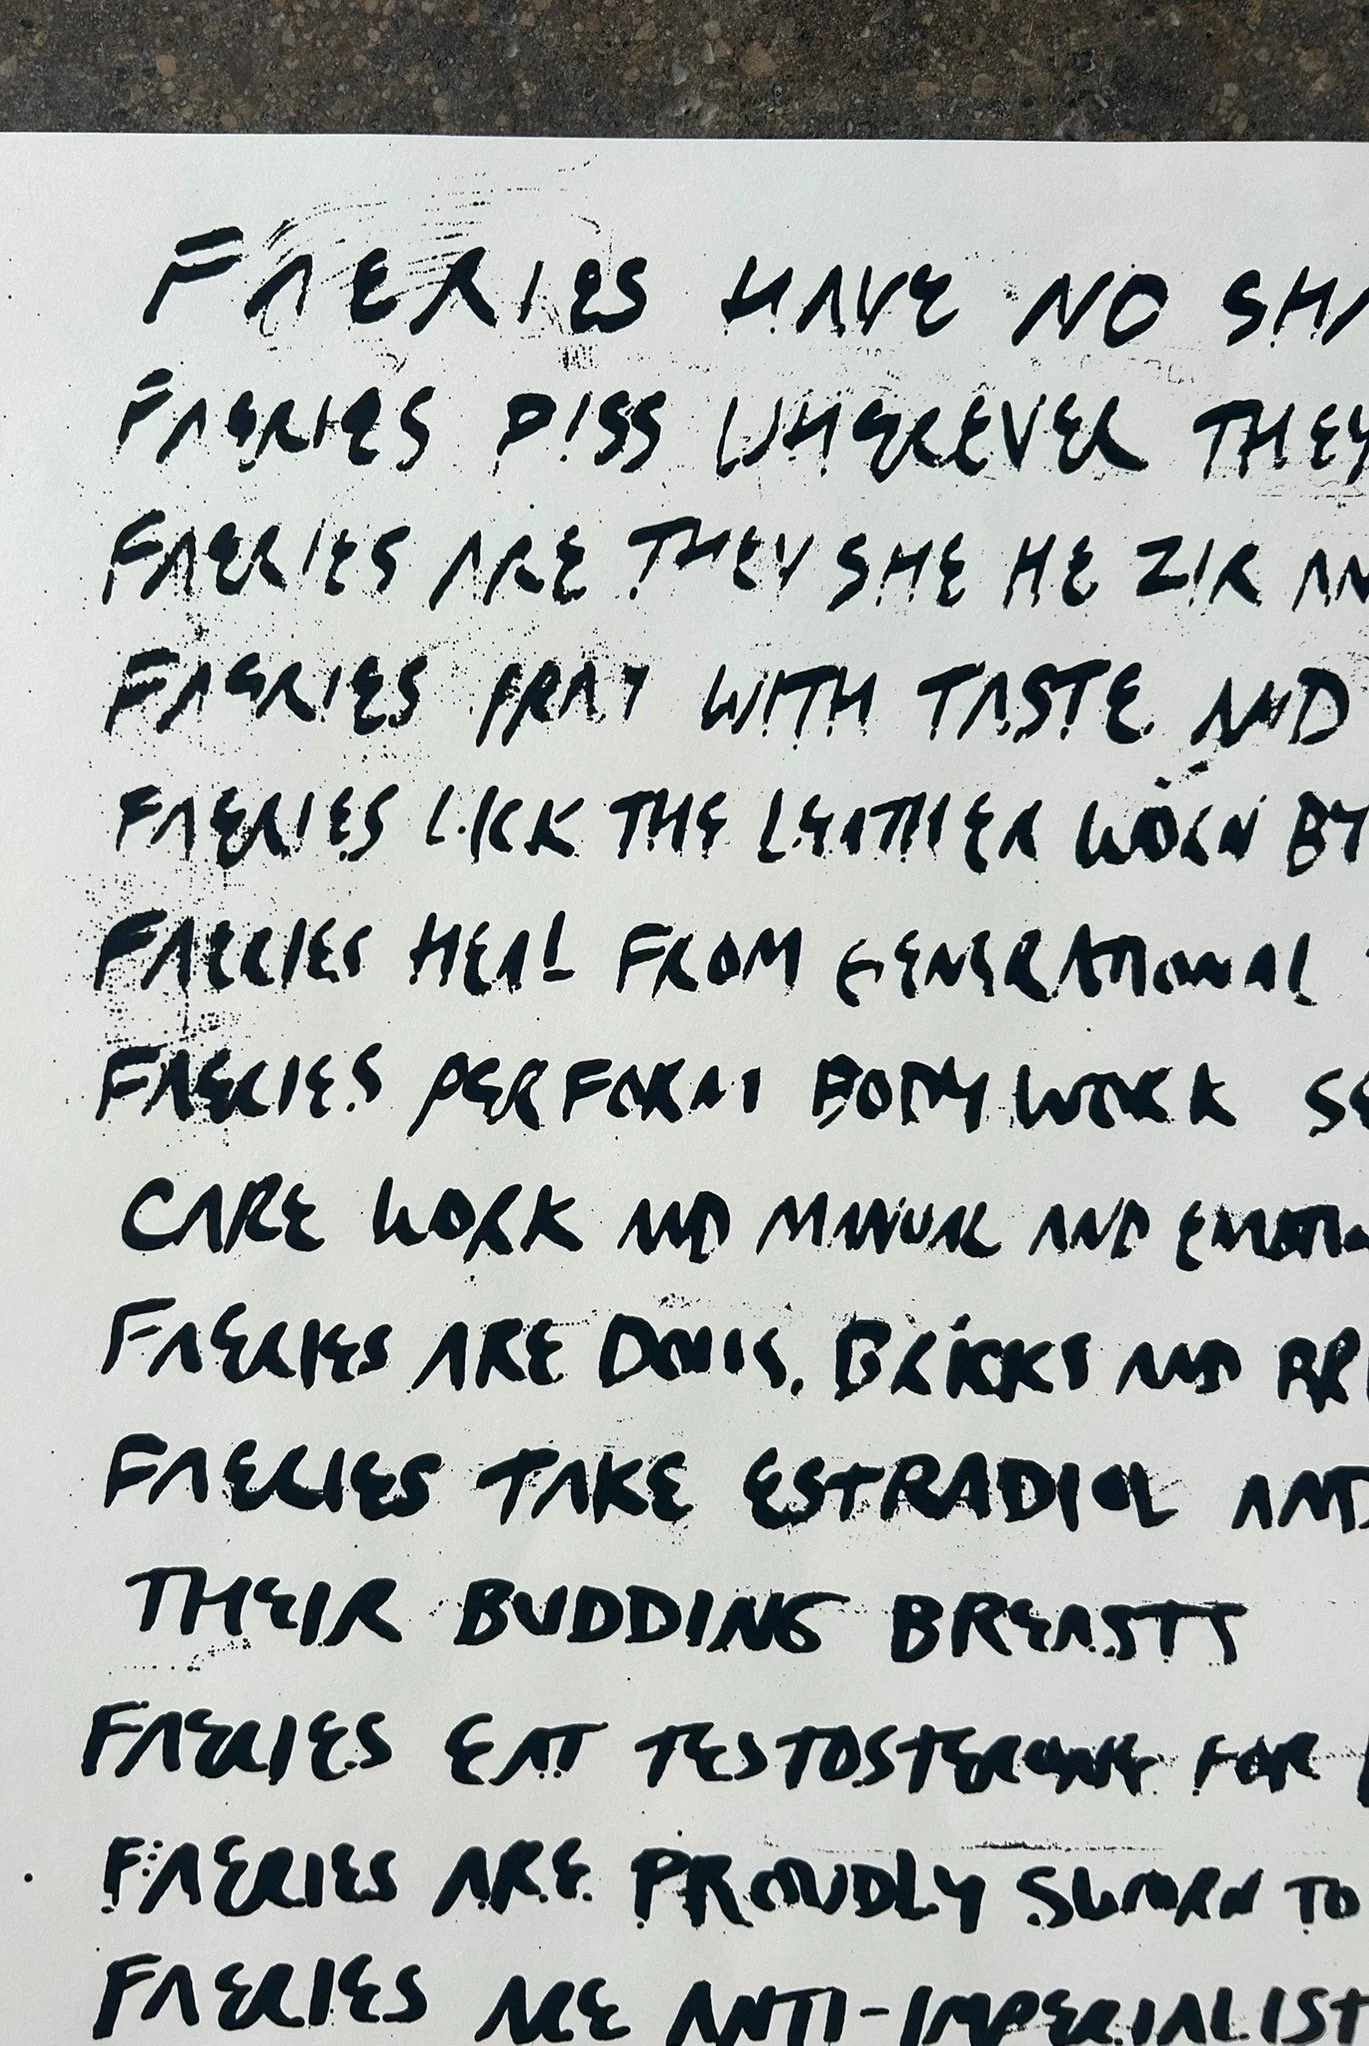 FAERIES HAVE NO SHA
FAERIES PISS WHEREVER THEY
FAERIES ARE THEY SHE HE ZIR AN
FAERIES PRAY WITH TASTE AND
FAERIES LICK THE LEATHER WORN BY
FAERIES HEAL FROM GENERATIONAL
FAERIES PERFORM BODY WORK SE
CARE WORK AND MANUAL AND EMOTIO
FAERIES ARE DOLLS, BRICKS AND BRI
FAERIES TAKE ESTRADIOL AND
THEIR BUDDING BREASTS
FAERIES EAT TESTOSTERONE FOR
FAERIES ARE PROUDLY SWORN TO
FAERIES ARE ANTI-IMPERIALIST